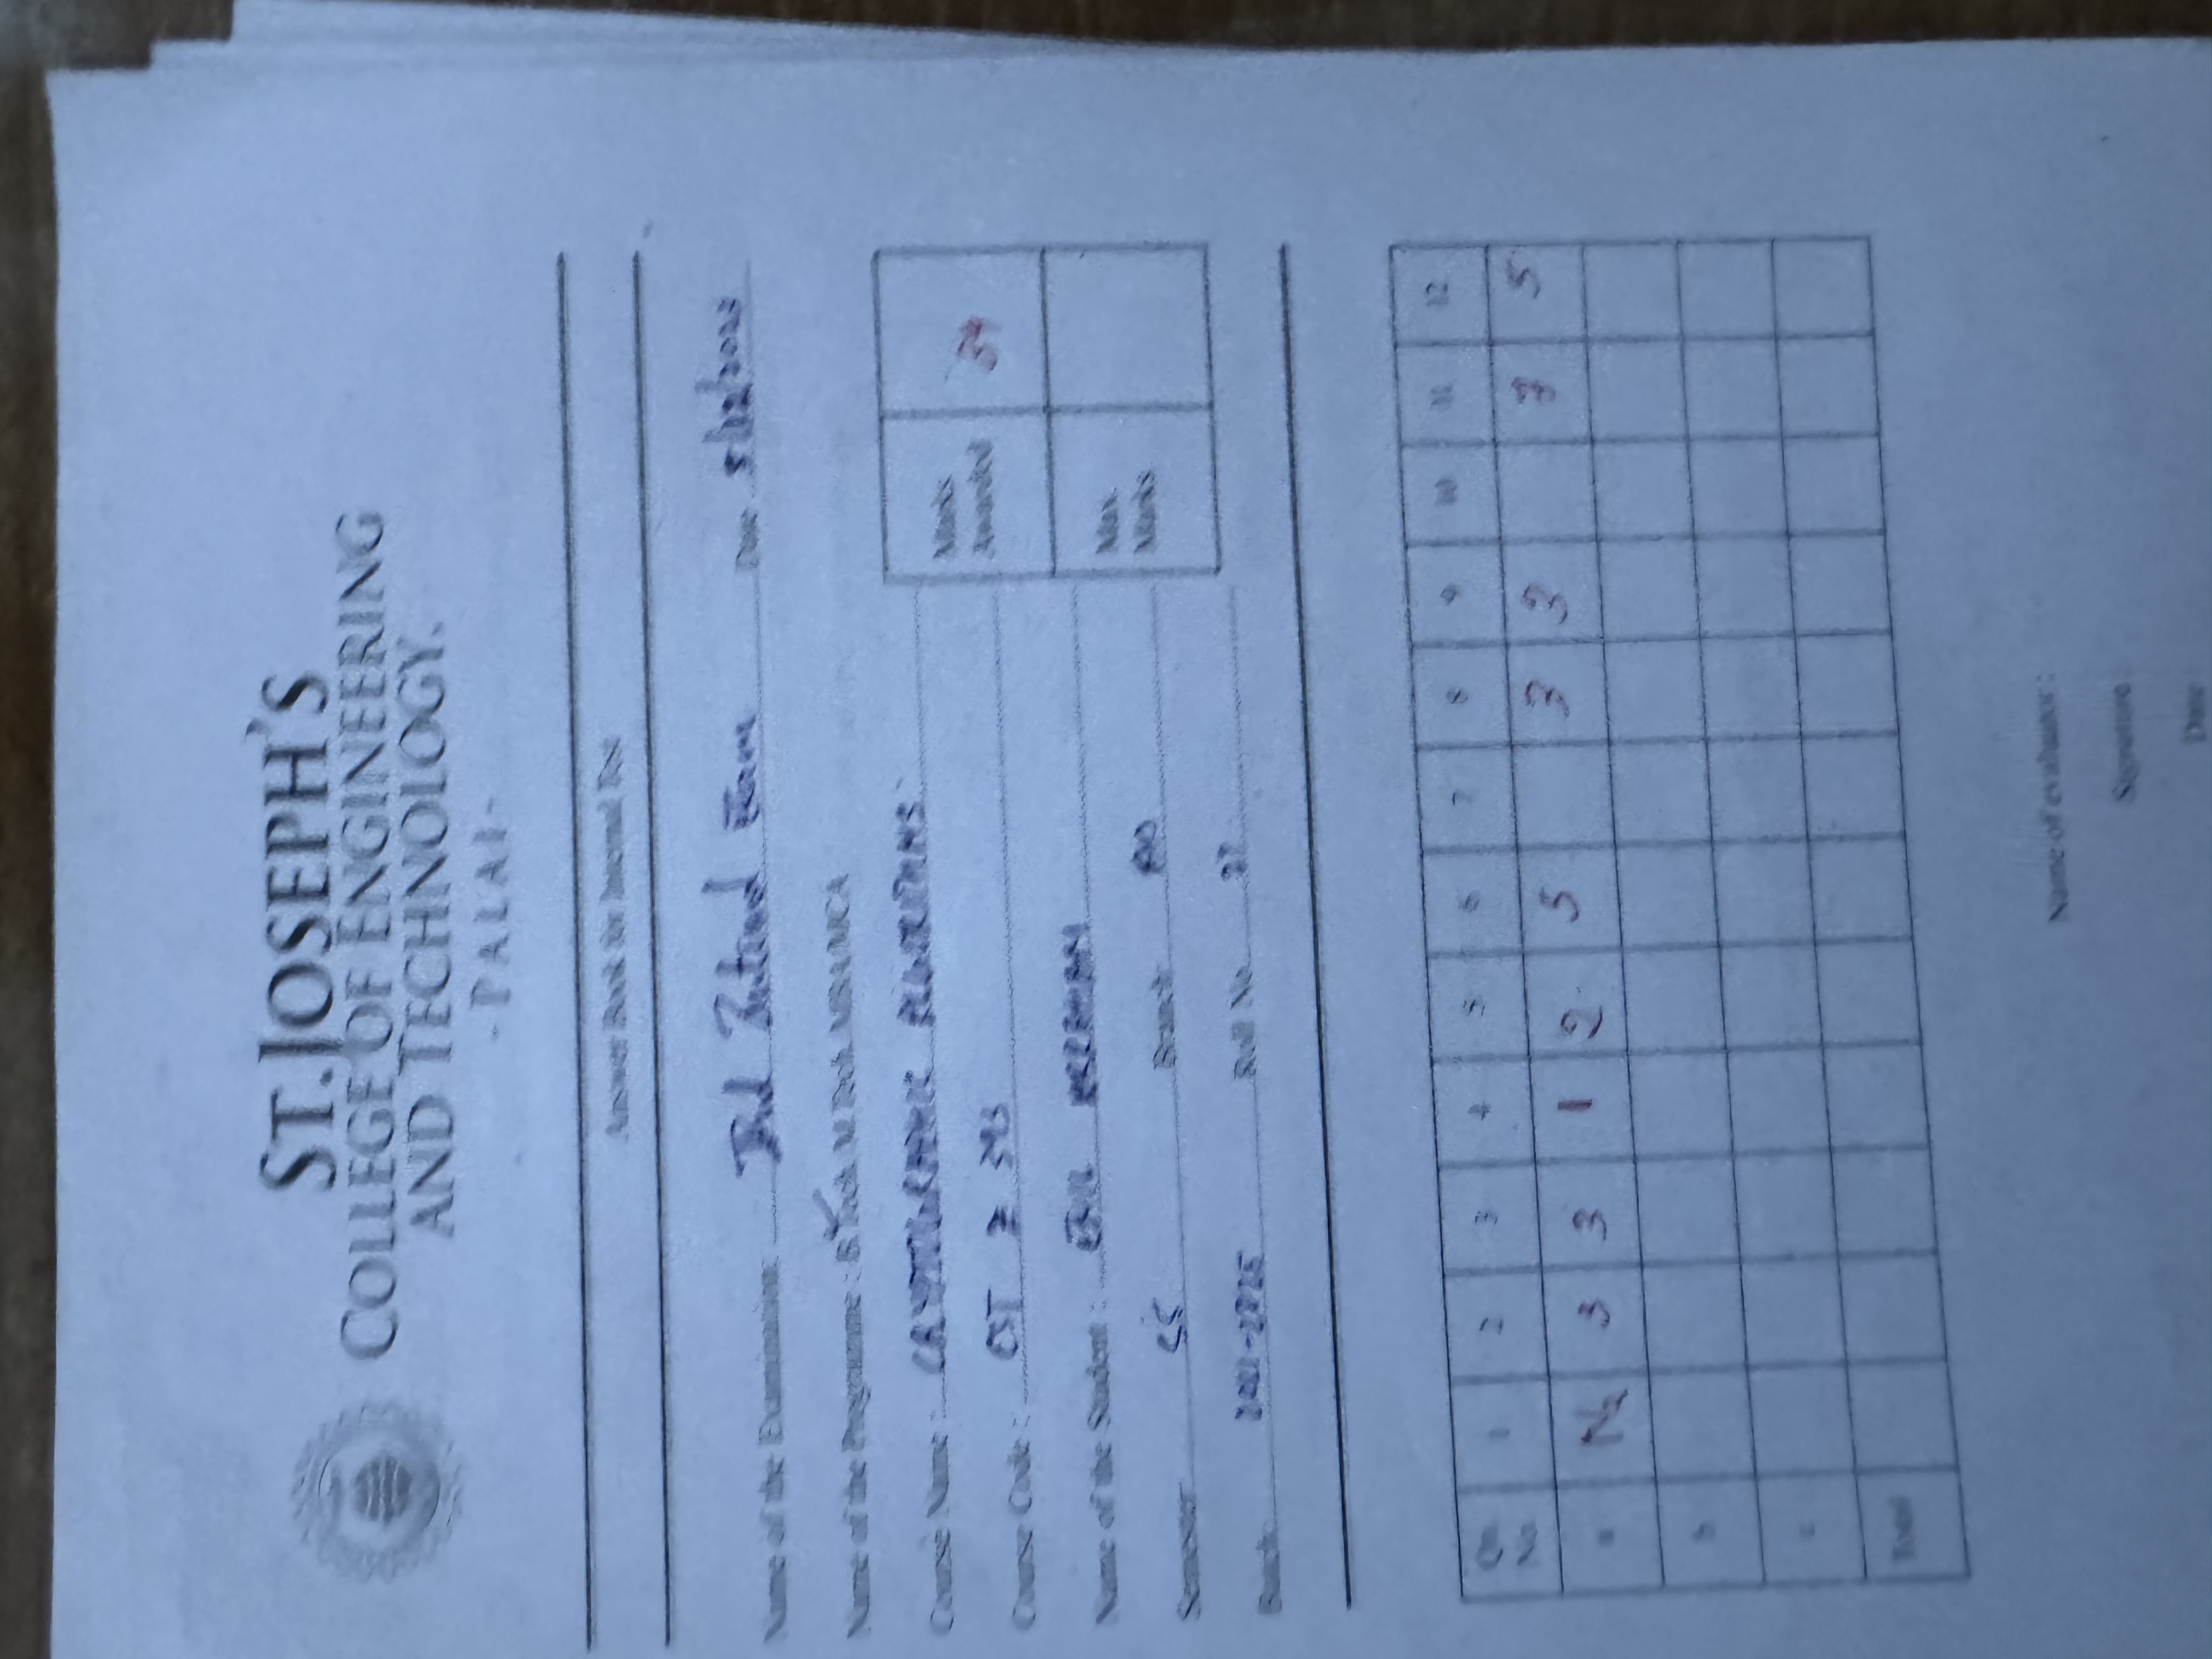 ST. JOSEPH'S
COLLEGE OF ENGINEERING
AND TECHNOLOGY.
-PALAI-
Answer Book for Internal Test
Name of the Examination: Exam Date 5/12/2023
Name of the Programme : B.Tech. M.Tech. MBA/MCA
Course Name : CRYPTOGRAPHIC ALGORITHMS
Marks Awarded 34
Course Code : CST 393
Name of the Student : ABRAHAM
Max. Marks
Semester S5 Branch AD
Batch 2021-2025 Roll No 27
Qn No 1 2 3 4 5 6 7 8 9 10 11 12
a 3 3 1 2 5 3 3 3 5
b
c
Total
Name of evaluator :
Signature
Date